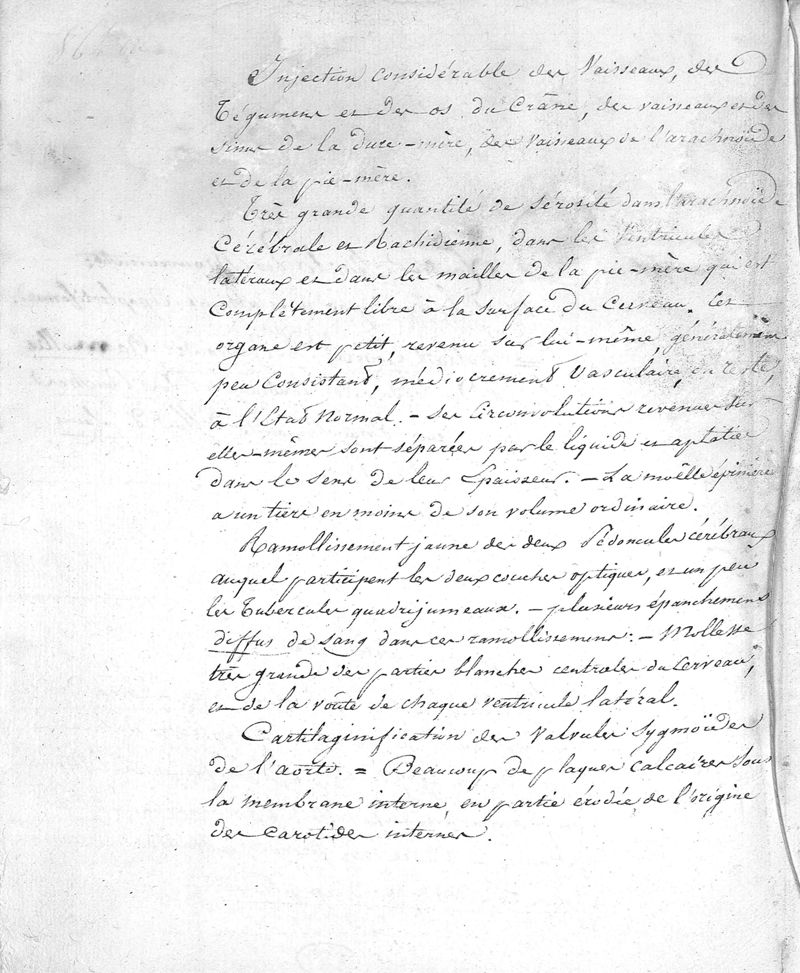 Injection considérable des Vaisseaux, des
Tégumens et des os du Crâne, des vaisseaux et des
sinus de la dure-mère, des Vaisseaux de l'arachnoïde
et de la pie-mère.
Très grande quantité de sérosité dans l'arachnoïde
Cérébrale et Rachidienne, dans les Ventricules
latéraux et dans les mailles de la pie-mère qui est
Complètement libre à la surface du Cerveau. Cet
organe est petit, revenu sur lui-même, généralement
peu Consistant, médiocrement Vasculaire, du reste,
à l'Etat Normal. - Ses Circonvolutions revenues sur
elles-mêmes sont séparées par le liquide et aplaties
dans le sens de leur Epaisseur. - La moëlle épinière
a un tiers en moins de son volume ordinaire.
Ramollissement jaune des deux Pédoncules cérébraux
auquel participent les deux couches optiques, et un peu
les Tubercules quadrijumeaux. - plusieurs épanchemens
diffus de sang dans ces ramollissemens. - Mollesse
très grande des parties blanches centrales du Cerveau,
et de la voûte de chaque ventricule latéral.
Cartilaginification des Valvules Sygmoïdes
de l'aorte. = Beaucoup de plaques calcaires sous
la membrane interne, en partie érodée de l'origine
des carotides internes.